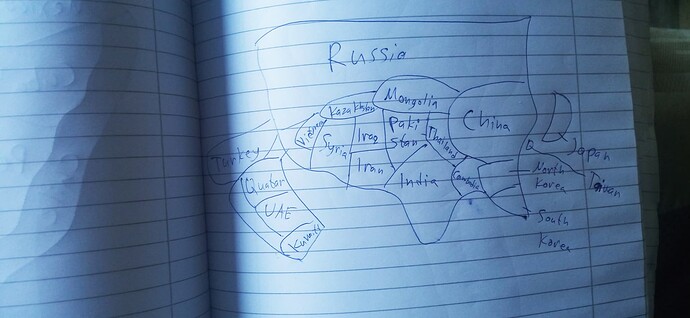 Russia
Mongolia
Kazakhstan
China
Vietnam
Syria
Iraq
Paki
stan
Thailand
Turkey
Iran
India
Cambodia
Japan
North
Korea
Taiwan
Quatar
UAE
Kuwait
South
Korea